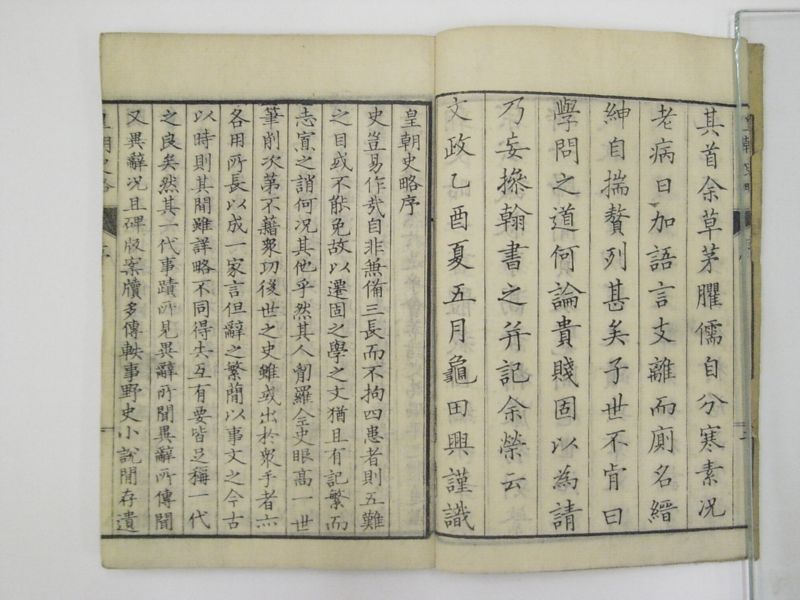 其首余草茅臞儒自分寒素况
老病日加語言支離而廁名縉
紳自揣贅列甚矣子世不肯曰
學問之道何論貴賤固以為請
乃妄摻翰書之并記余榮云
文政乙酉夏五月龜田興謹識
皇朝史略序
史豈易作哉自非無備三長而不拘四患者則五難
之目或不能免故以遷固之學之文猶且有記繁而
志寡之誚何况其他乎然其人劑羅全史眼高一世
筆削次第不藉衆功後世之史雖或出於衆手者亦
各用所長以成一家言但辭之繁簡以事文之今古
以時則其間雖詳略不同得失互有要皆足稱一代
之良矣然其一代事蹟所見異辭所聞異辭所傳聞
又異辭况且碑版案牘多傳軼事野史小說閒存遺
皇朝史略